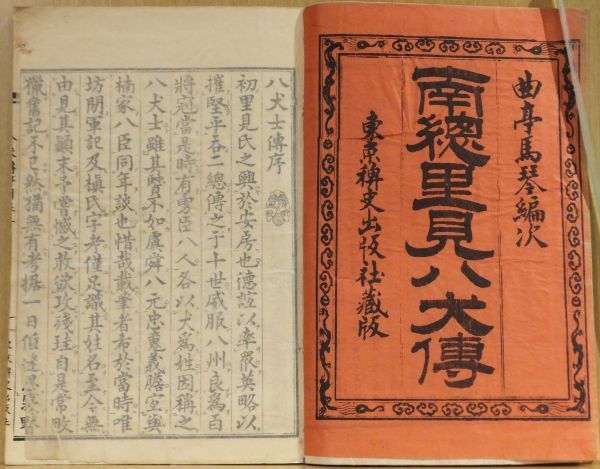 曲亭馬琴編次
南總里見八犬傳
東京稗史出版社藏版
八犬士傳序
初里見氏之興於安房也德誼以率衆英略以
摧堅平呑二總傳之于十世威服八州良爲百
將冠當是時有勇臣八人各以犬爲姓因稱之
八犬士雖其賢不如虞舜八元忠魂義膽宜與
楠家八臣同年談也惜哉載筆者希於當時唯
坊間軍記及槇氏字考僅足識其姓名至今無
由見其顚末予嘗憾之敢欲攻殘珪自是常畋
獵舊記不已然猶無有考据一日低迷思寢